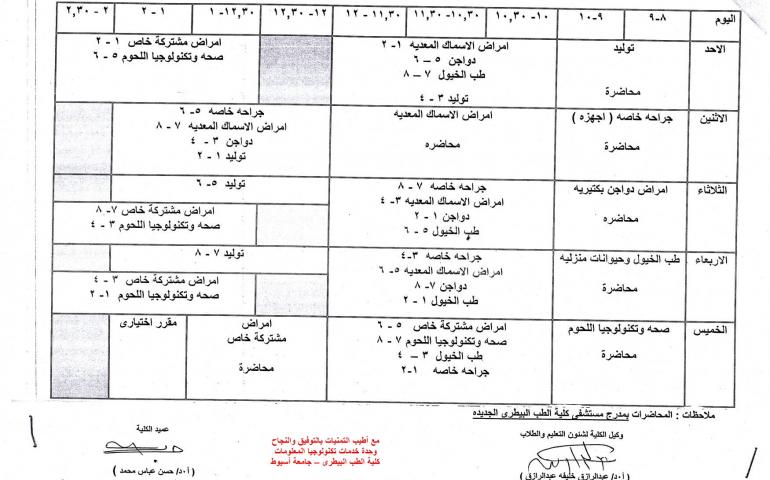 اليوم ٨-٩ ٩-١٠ ١٠-١٠,٣٠ ١٠,٣٠-١١,٣٠ ١١,٣٠-١٢ ١٢-١٢,٣٠ ١٢,٣٠-١ ١-٢ ٢-٢,٣٠
الاحد
توليد
محاضرة
امراض الاسماك المعديه ١-٢
دواجن ٥-٦
طب الخيول ٧-٨
توليد ٣-٤
امراض مشتركة خاص ١-٢
صحه وتكنولوجيا اللحوم ٥-٦
الاثنين
جراحه خاصه ( اجهزه )
محاضرة
امراض الاسماك المعديه
محاضره
جراحه خاصه ٥-٦
امراض الاسماك المعديه ٧-٨
دواجن ٣-٤
توليد ١-٢
الثلاثاء
امراض دواجن بكتيريه
محاضره
جراحه خاصه ٧-٨
امراض الاسماك المعديه ٣-٤
دواجن ١-٢
طب الخيول ٥-٦
توليد ٥-٦
امراض مشتركة خاص ٧-٨
صحه وتكنولوجيا اللحوم ٣-٤
الاربعاء
طب الخيول وحيوانات منزليه
محاضرة
جراحه خاصه ٣-٤
امراض الاسماك المعديه ٥-٦
دواجن ٧-٨
طب الخيول ١-٢
توليد ٧-٨
امراض مشتركة خاص ٣-٤
صحه وتكنولوجيا اللحوم ١-٢
الخميس
صحه وتكنولوجيا اللحوم
محاضرة
امراض مشتركة خاص ٥-٦
صحه وتكنولوجيا اللحوم ٧-٨
طب الخيول ٣-٤
جراحه خاصه ١-٢
امراض
مشتركة خاص
محاضرة
مقرر اختيارى
ملاحظات : المحاضرات بمدرج مستشفى كلية الطب البيطرى الجديده
وكيل الكلية لشئون التعليم والطلاب
(أ.د/ عبدالرازق خليفه عبدالرازق)
مع أطيب التمنيات بالتوفيق والنجاح
وحدة خدمات تكنولوجيا المعلومات
كلية الطب البيطرى – جامعة أسيوط
عميد الكلية
( أ.د/ حسن عباس محمد )